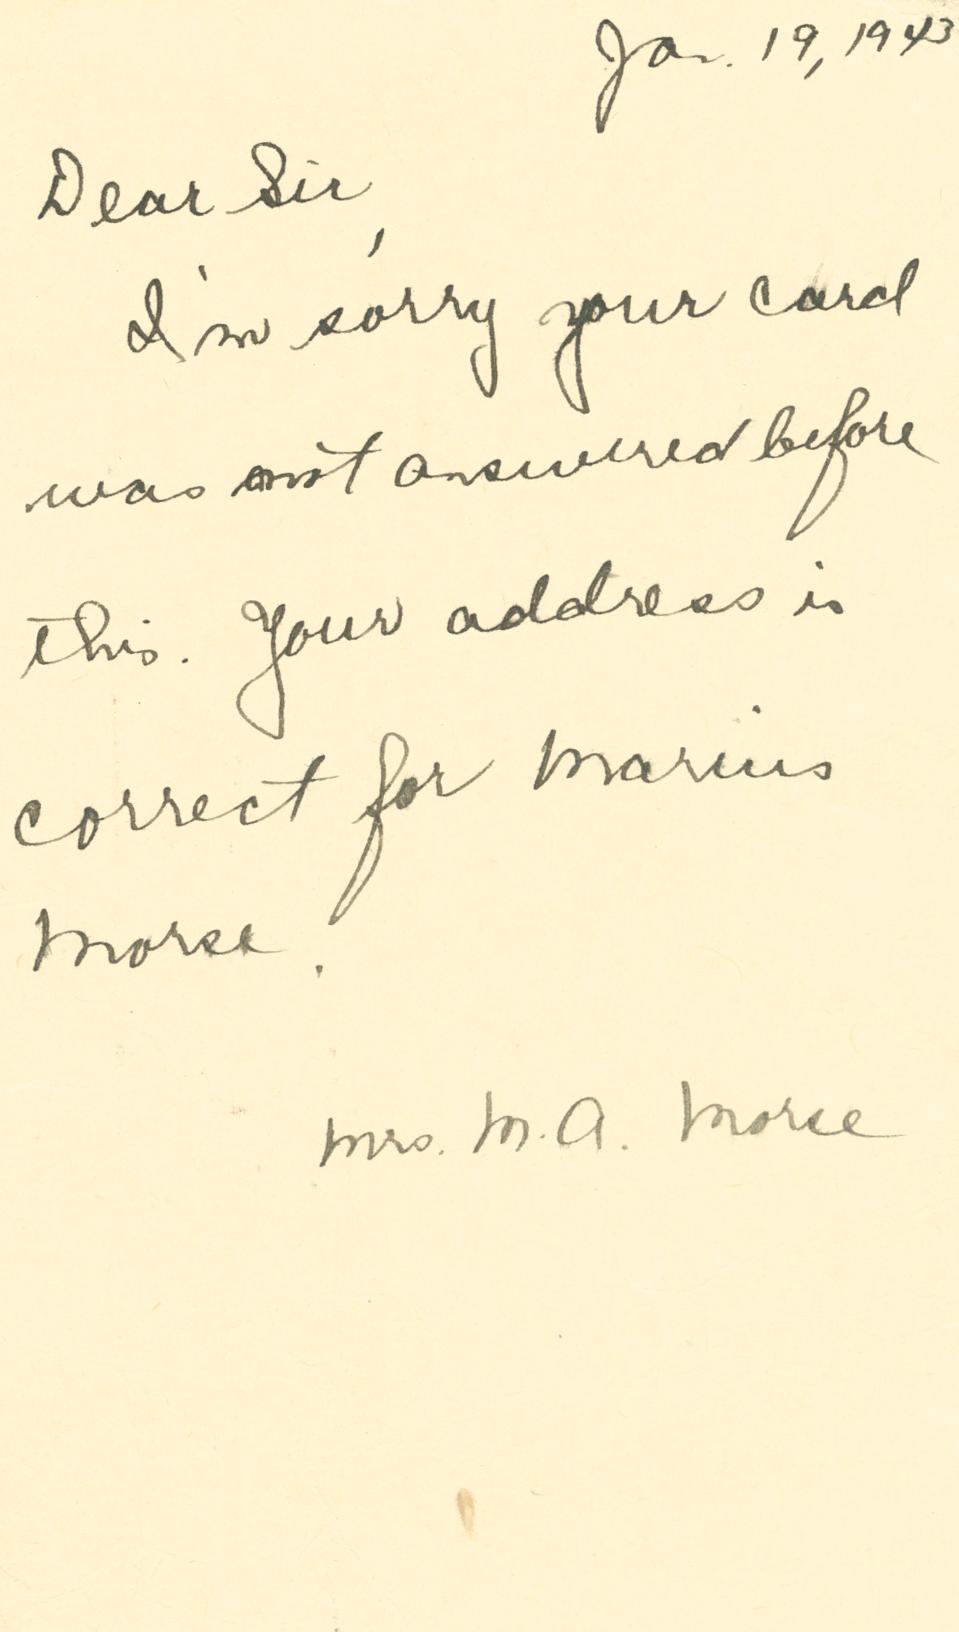 Jan. 19, 1943
Dear Sir,
I'm sorry your card
was not answered before
this. Your address is
correct for Marius
Morse.
Mrs. M. A. Morse